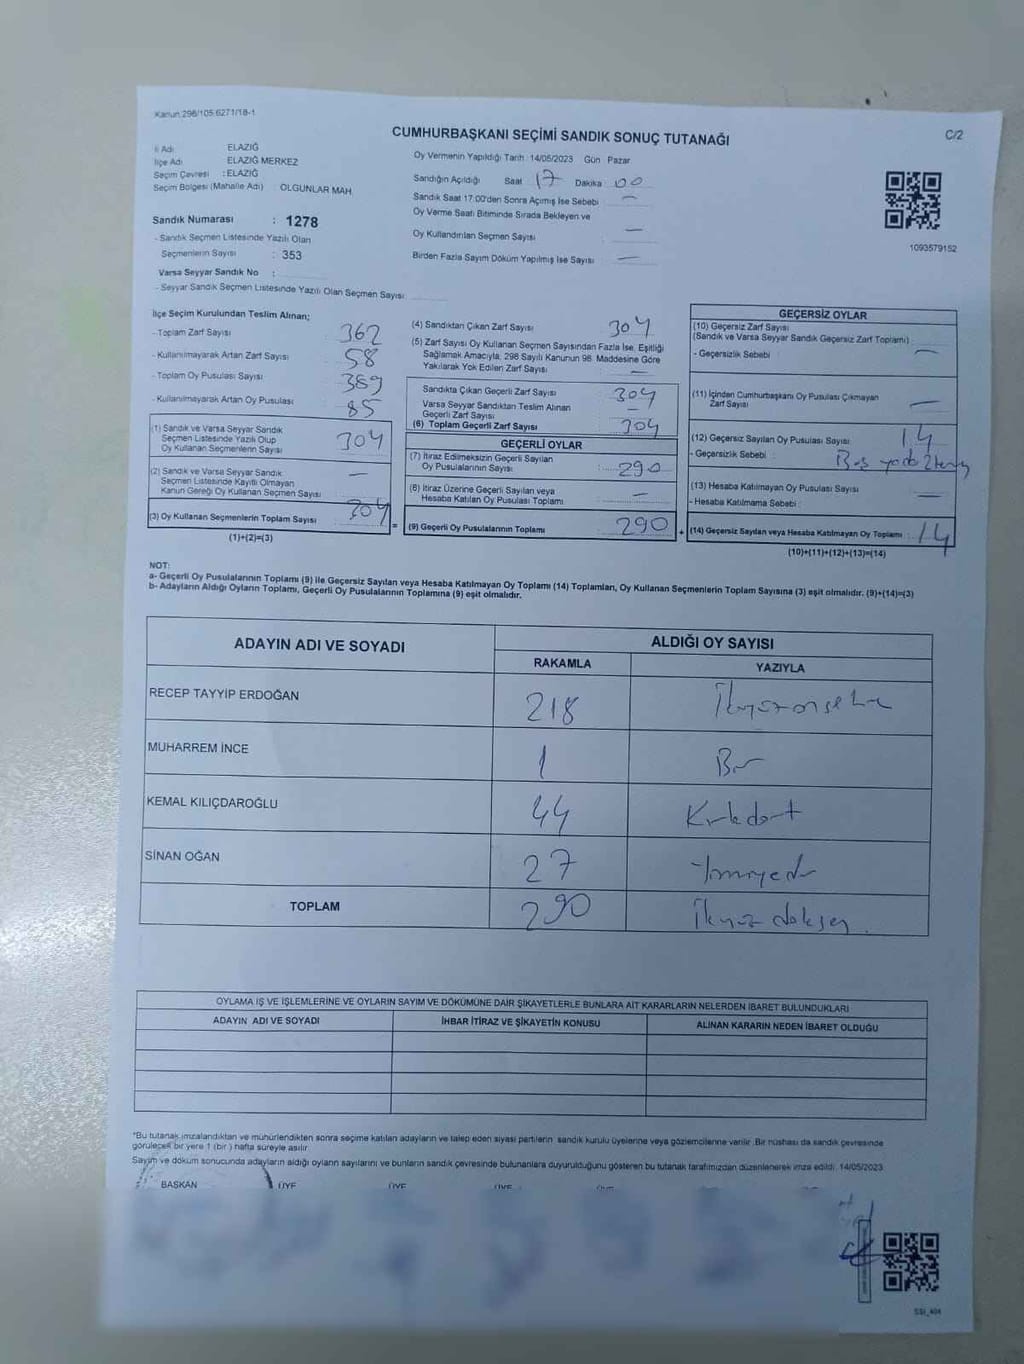 Kanun:298/105 6271/18-1
CUMHURBAŞKANI SEÇİMİ SANDIK SONUÇ TUTANAĞI
C/2
İl Adı : ELAZIĞ
İlçe Adı : ELAZIĞ MERKEZ
Seçim Çevresi : ELAZIĞ
Seçim Bölgesi (Mahalle Adı) : OLGUNLAR MAH.
Sandık Numarası : 1278
- Sandık Seçmen Listesinde Yazılı Olan
Seçmenlerin Sayısı : 353
Varsa Seyyar Sandık No :
- Seyyar Sandık Seçmen Listesinde Yazılı Olan Seçmen Sayısı:
Oy Vermenin Yapıldığı Tarih :14/05/2023 Gün Pazar
Sandığın Açıldığı Saat 17 Dakika 00
Sandık Saat 17:00'den Sonra Açılmış İse Sebebi
Oy Verme Saati Bitiminde Sırada Bekleyen ve
Oy Kullandırılan Seçmen Sayısı
Birden Fazla Sayım Döküm Yapılmış İse Sayısı
1093579152
İlçe Seçim Kurulundan Teslim Alınan;
- Toplam Zarf Sayısı 362
- Kullanılmayarak Artan Zarf Sayısı 58
- Toplam Oy Pusulası Sayısı 389
- Kullanılmayarak Artan Oy Pusulası 85
(1) Sandık ve Varsa Seyyar Sandık
Seçmen Listesinde Yazılı Olup
Oy Kullanan Seçmenlerin Sayısı 304
(2) Sandık ve Varsa Seyyar Sandık
Seçmen Listesinde Kayıtlı Olmayan
Kanun Gereği Oy Kullanan Seçmen Sayısı
(3) Oy Kullanan Seçmenlerin Toplam Sayısı 304 =
(1)+(2)=(3)
(4) Sandıktan Çıkan Zarf Sayısı 304
(5) Zarf Sayısı Oy Kullanan Seçmen Sayısından Fazla İse, Eşitliği
Sağlamak Amacıyla, 298 Sayılı Kanunun 98. Maddesine Göre
Yakılarak Yok Edilen Zarf Sayısı
Sandıkta Çıkan Geçerli Zarf Sayısı 304
Varsa Seyyar Sandıktan Teslim Alınan
Geçerli Zarf Sayısı
(6) Toplam Geçerli Zarf Sayısı 304
GEÇERLİ OYLAR
(7) İtiraz Edilmeksizin Geçerli Sayılan
Oy Pusulalarının Sayısı 290
(8) İtiraz Üzerine Geçerli Sayılan veya
Hesaba Katılan Oy Pusulası Toplamı
(9) Geçerli Oy Pusulalarının Toplamı 290 +
GEÇERSİZ OYLAR
(10) Geçersiz Zarf Sayısı
(Sandık ve Varsa Seyyar Sandık Geçersiz Zarf Toplamı)
- Geçersizlik Sebebi :
(11) İçinden Cumhurbaşkanı Oy Pusulası Çıkmayan
Zarf Sayısı
(12) Geçersiz Sayılan Oy Pusulası Sayısı 14
- Geçersizlik Sebebi :
(13) Hesaba Katılmayan Oy Pusulası Sayısı
- Hesaba Katılmama Sebebi :
(14) Geçersiz Sayılan veya Hesaba Katılmayan Oy Toplamı 14
(10)+(11)+(12)+(13)=(14)
NOT:
a- Geçerli Oy Pusulalarının Toplamı (9) ile Geçersiz Sayılan veya Hesaba Katılmayan Oy Toplamı (14) Toplamları, Oy Kullanan Seçmenlerin Toplam Sayısına (3) eşit olmalıdır. (9)+(14)=(3)
b- Adayların Aldığı Oyların Toplamı, Geçerli Oy Pusulalarının Toplamına (9) eşit olmalıdır.
ADAYIN ADI VE SOYADI
ALDIĞI OY SAYISI
RAKAMLA YAZIYLA
RECEP TAYYİP ERDOĞAN 218 İkiyüzonsekiz
MUHARREM İNCE 1 Bir
KEMAL KILIÇDAROĞLU 44 Kırkdört
SİNAN OĞAN 27 Yirmiyedi
TOPLAM 290 İkiyüz doksan
OYLAMA İŞ VE İŞLEMLERİNE VE OYLARIN SAYIM VE DÖKÜMÜNE DAİR ŞİKAYETLERLE BUNLARA AİT KARARLARIN NELERDEN İBARET BULUNDUKLARI
ADAYIN ADI VE SOYADI İHBAR İTİRAZ VE ŞİKAYETİN KONUSU ALINAN KARARIN NEDEN İBARET OLDUĞU
*Bu tutanak imzalandıktan ve mühürlendikten sonra seçime katılan adayların ve talep eden siyasi partilerin sandık kurulu üyelerine veya gözlemcilerine verilir. Bir nüshası da sandık çevresinde
görülecek bir yere 1 (bir ) hafta süreyle asılır.
Sayım ve döküm sonucunda adayların aldığı oyların sayılarını ve bunların sandık çevresinde bulunanlara duyurulduğunu gösteren bu tutanak tarafımızdan düzenlenerek imza edildi. 14/05/2023
BAŞKAN ÜYE ÜYE ÜYE ÜYE
SSI_404